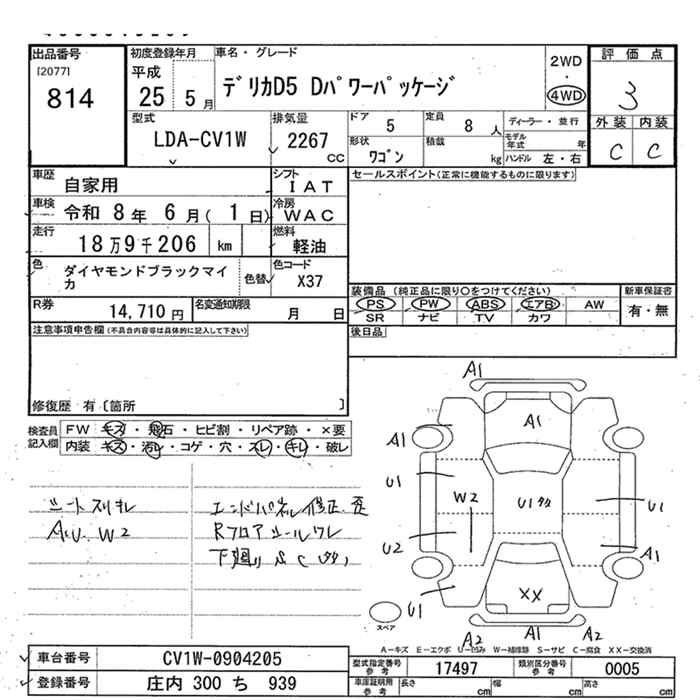 出品番号 初度登録年月 車名・グレード 2WD ・ 4WD 評価点
[2077] 814 平成 25 5月 デリカD5 Dパワーパッケージ 3
型式 LDA-CV1W 排気量 2267 CC
ドア 5 定員 8人 ディーラー・並行 外装 内装
形状 ワゴン 積載 kg モデル年式 年 C C
ハンドル 左・右
車歴 自家用 シフト IAT セールスポイント(正常に機能するものに限ります)
車検 令和 8年 6月( 1日) 冷房 WAC
走行 18万9千206 km 燃料 軽油
色 ダイヤモンドブラックマイカ 色替 色コード X37
装備品 (純正品に限り○をつけてください) 新車保証書
PS PW ABS エアB AW 有・無
SR ナビ TV カワ
R券 14,710円 名変通知期限 月 日
後日品
注意事項申告欄(不具合内容等は具体的に記入して下さい)
修復歴 有〔箇所 〕
検査員記入欄 FW キズ・飛石・ヒビ割・リペア跡・×要
内装 キズ・汚レ・コゲ・穴・スレ・キレ・破レ
シートスリキレ
A.U. W2
エンドパネル修正、歪
Rフロアシールワレ
下廻り S C
A1
A1
A1
U1
W2
U1
U1
U2
A1
XX
U1
スペア
A2 A1 A2
A-キズ E-エクボ U-凹み W-補修跡 S-サビ C-腐食 XX-交換済
車台番号 CV1W-0904205
型式指定番号 参考 17497 類別区分番号 参考 0005
登録番号 庄内 300 ち 939
車庫証明用 参考 長さ cm 幅 cm 高さ cm